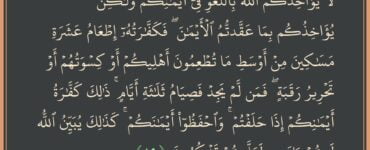 لَا يُؤَاخِذُكُمُ ٱللَّهُ بِٱللَّغْوِ فِىٓ أَيْمَٰنِكُمْ وَلَٰكِن
يُؤَاخِذُكُم بِمَا عَقَّدتُّمُ ٱلْأَيْمَٰنَ ۖ فَكَفَّٰرَتُهُۥٓ إِطْعَامُ عَشَرَةِ
مَسَٰكِينَ مِنْ أَوْسَطِ مَا تُطْعِمُونَ أَهْلِيكُمْ أَوْ كِسْوَتُهُمْ أَوْ
تَحْرِيرُ رَقَبَةٍ ۖ فَمَن لَّمْ يَجِدْ فَصِيَامُ ثَلَٰثَةِ أَيَّامٍ ۚ ذَٰلِكَ كَفَّٰرَةُ
أَيْمَٰنِكُمْ إِذَا حَلَفْتُمْ ۚ وَٱحْفَظُوٓا۟ أَيْمَٰنَكُمْ ۚ كَذَٰلِكَ يُبَيِّنُ ٱللَّهُ